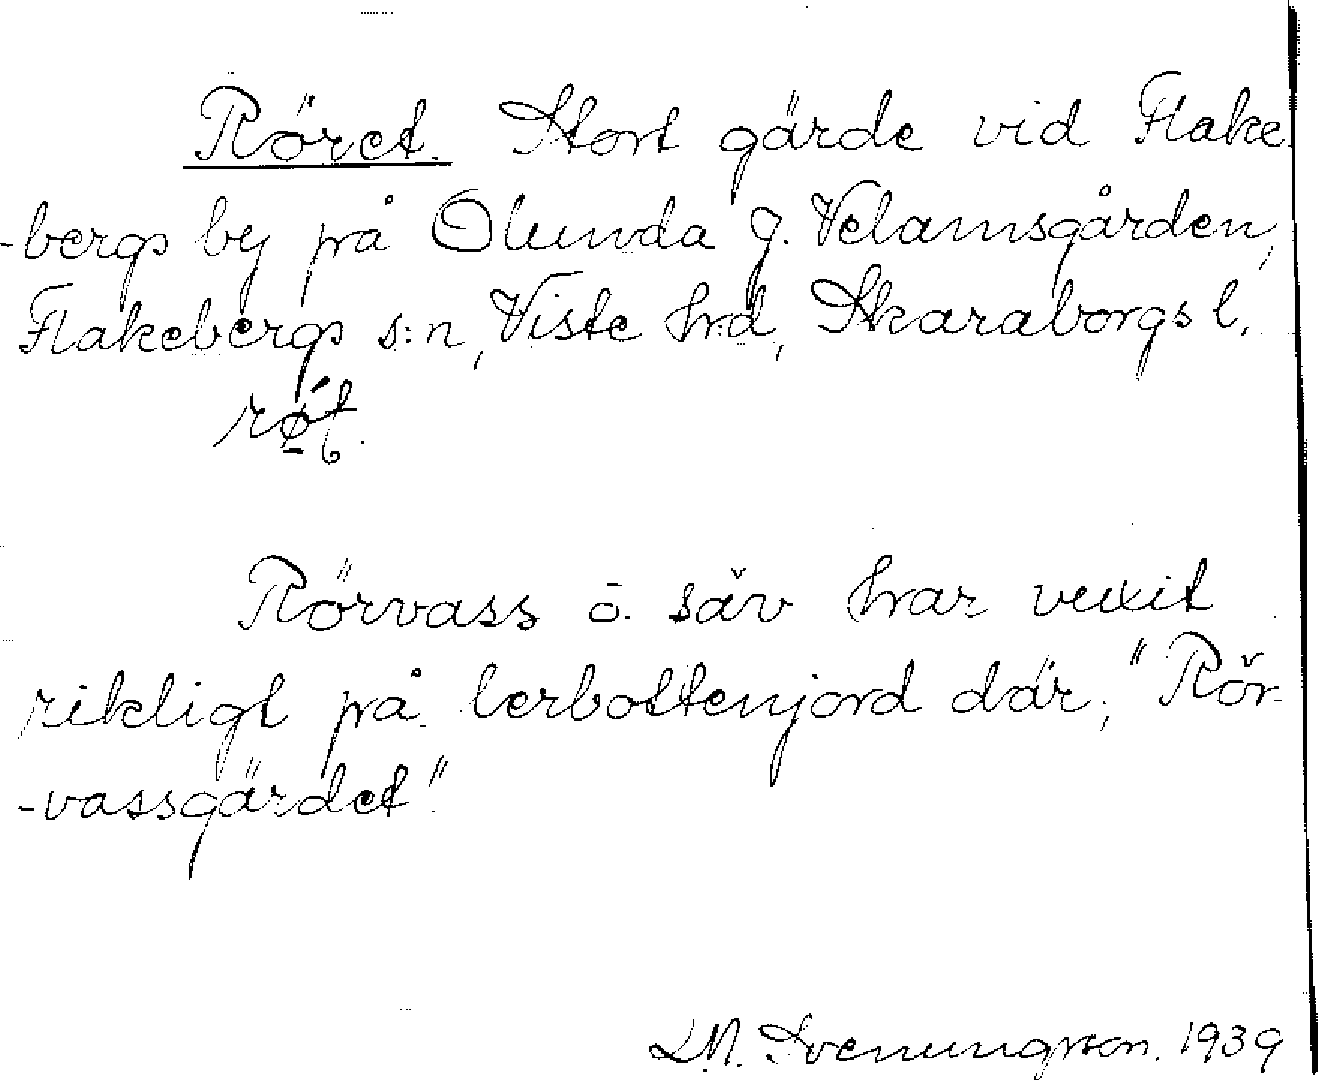 Röret. Stort gärde vid Flake
-bergs by på Olunda g. Velamsgården,
Flakebergs s:n, Viste hrd, Skaraborgs l.
Rörvass o. säv har vuxit
rikligt på lerbottenjord där, "Rör-
-vassgärdet".
L.N. Svenungsson. 1939